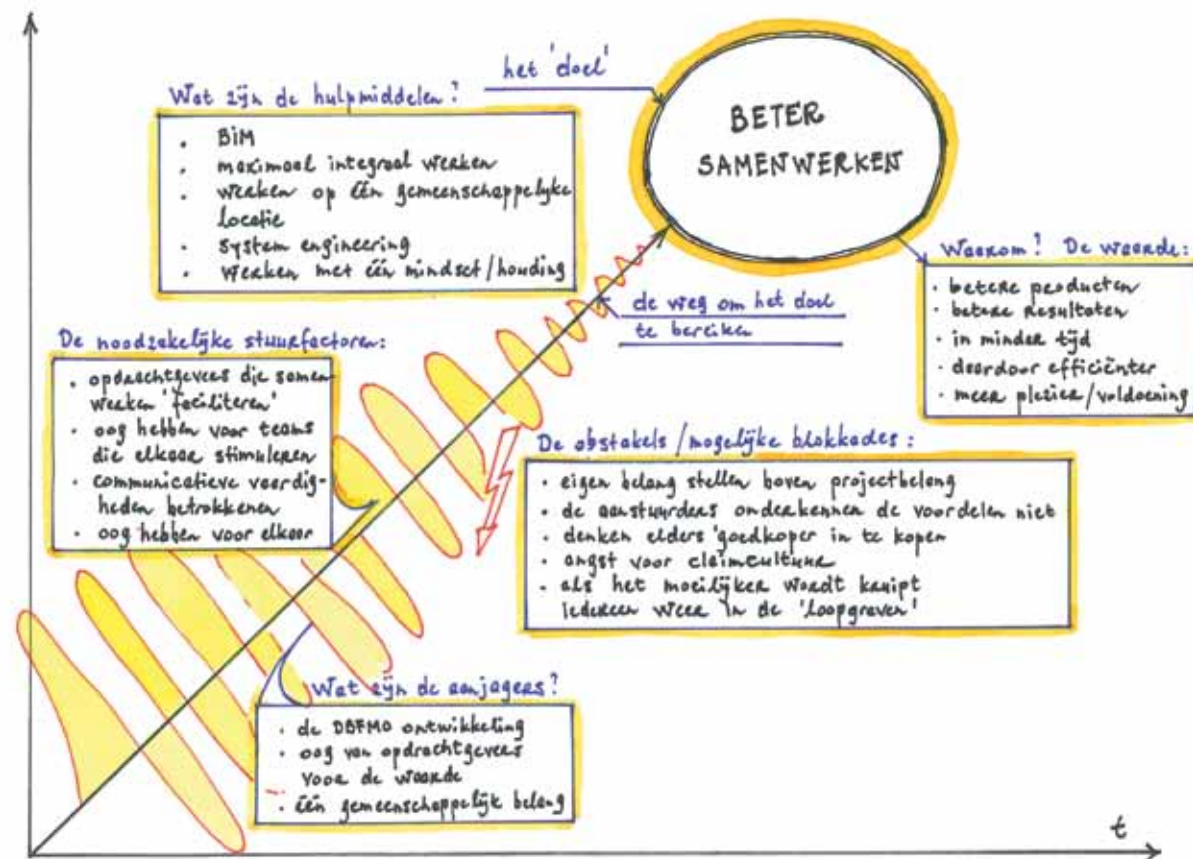 het 'doel'
BETER
SAMENWERKEN
Wat zijn de hulpmiddelen?
• BIM
• maximaal integraal werken
• werken op één gemeenschappelijke
locatie
• system engineering
• werken met één mindset/houding
Waarom? De waarde:
• betere producten
• betere resultaten
• in minder tijd
• daardoor efficiënter
• meer plezier/voldoening
de weg om het doel
te bereiken
De noodzakelijke stuurfactoren:
• opdrachtgevers die samen-
werken 'faciliteren'
• oog hebben voor teams
die elkaar stimuleren
• communicatieve vaardig-
heden betrokkenen
• oog hebben voor elkaar
De obstakels/mogelijke blokkades:
• eigen belang stellen boven projectbelang
• de aanstuurders onderkennen de voordelen niet
• denken elders 'goedkoper in te kopen
• angst voor claimcultuur
• als het moeilijker wordt kruipt
iedereen weer in de 'loopgraven'
Wat zijn de aanjagers?
• de DBFMO ontwikkeling
• oog van opdrachtgevers
voor de waarde
• één gemeenschappelijk belang
t